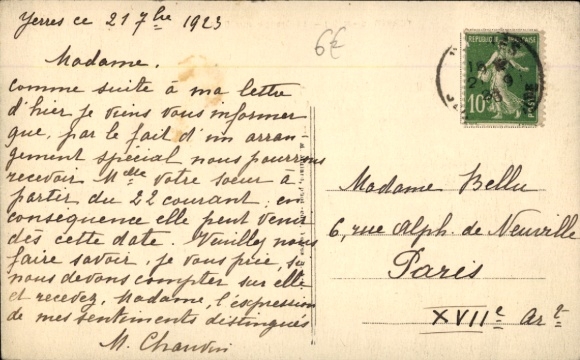 Yerres ce 21 7bre 1923
6€
Madame,
comme suite à ma lettre
d'hier je viens vous informer
que, par le fait d'un arran-
gement spécial nous pourrons
recevoir Melle votre soeur à
partir du 22 courant; en
conséquence elle peut venir
dès cette date. Veuillez nous
faire savoir, je vous prie, si
nous devons compter sur elle
et recevez, Madame, l'expression
de mes sentiments distingués
M. Chauvin
REPUBLIQUE FRANÇAISE
10c
POSTES
Madame Bellu
6, rue Alph. de Neuville
Paris
XVIIe Art